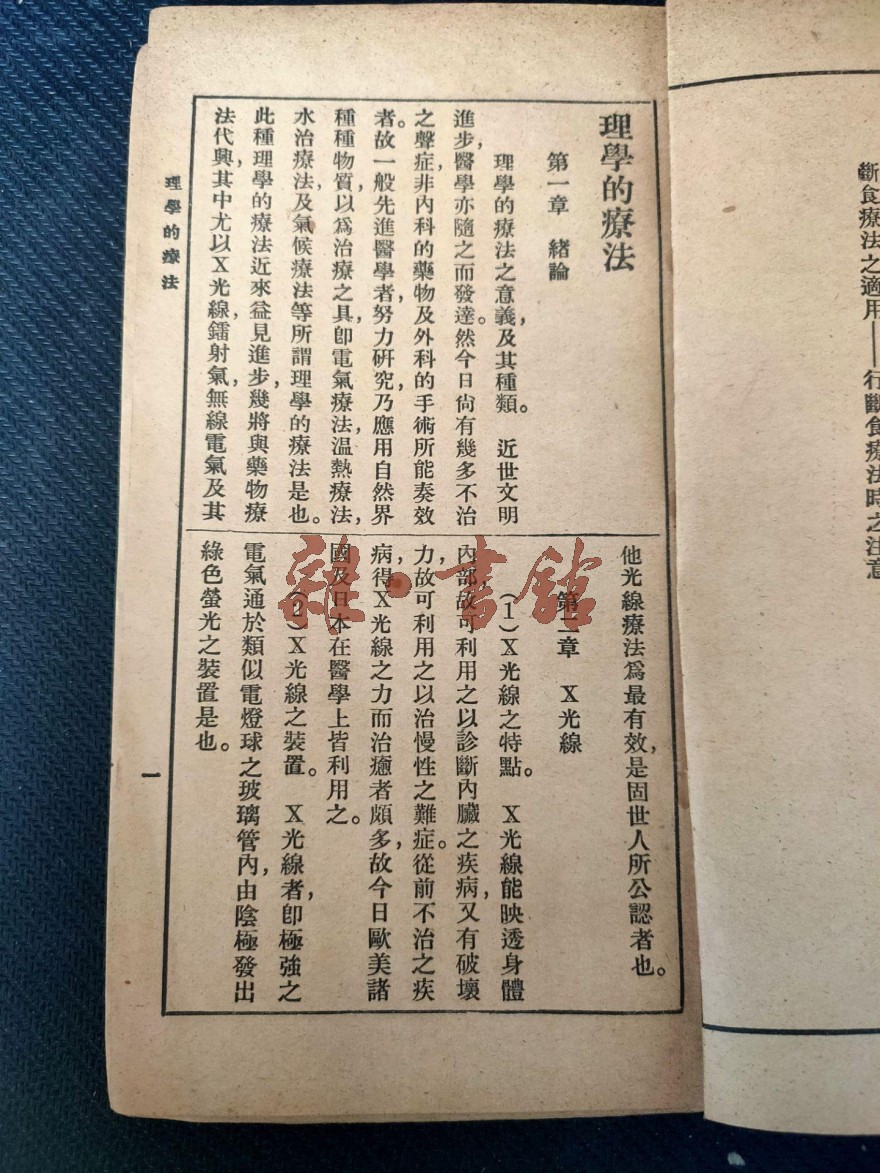 斷食療法之適用——行斷食療法時之注意
理學的療法
第一章 緒論
理學的療法之意義,及其種類。 近世文明
進步,醫學亦隨之而發達。然今日尙有幾多不治
之聲症,非內科的藥物及外科的手術所能奏效
者。故一般先進醫學者,努力硏究,乃應用自然界
種種物質,以爲治療之具,卽電氣療法,温熱療法,
水治療法,及氣候療法等所謂理學的療法是也。
此種理學的療法近來益見進步,幾將與藥物療
法代興,其中尤以X光線,鐳射氣,無線電氣及其
他光線療法爲最有效,是固世人所公認者也。
第二章 X光線
(1)X光線之特點。 X光線能映透身體
內部,故可利用之以診斷內臟之疾病,又有破壞
力,故可利用之以治慢性之難症。從前不治之疾
病,得X光線之力而治癒者頗多,故今日歐美諸
國及日本在醫學上皆利用之。
(2)X光線之裝置。 X光線者,卽極強之
電氣通於類似電燈球之玻璃管內,由陰極發出
綠色螢光之裝置是也。
理學的療法
一
雜·書館